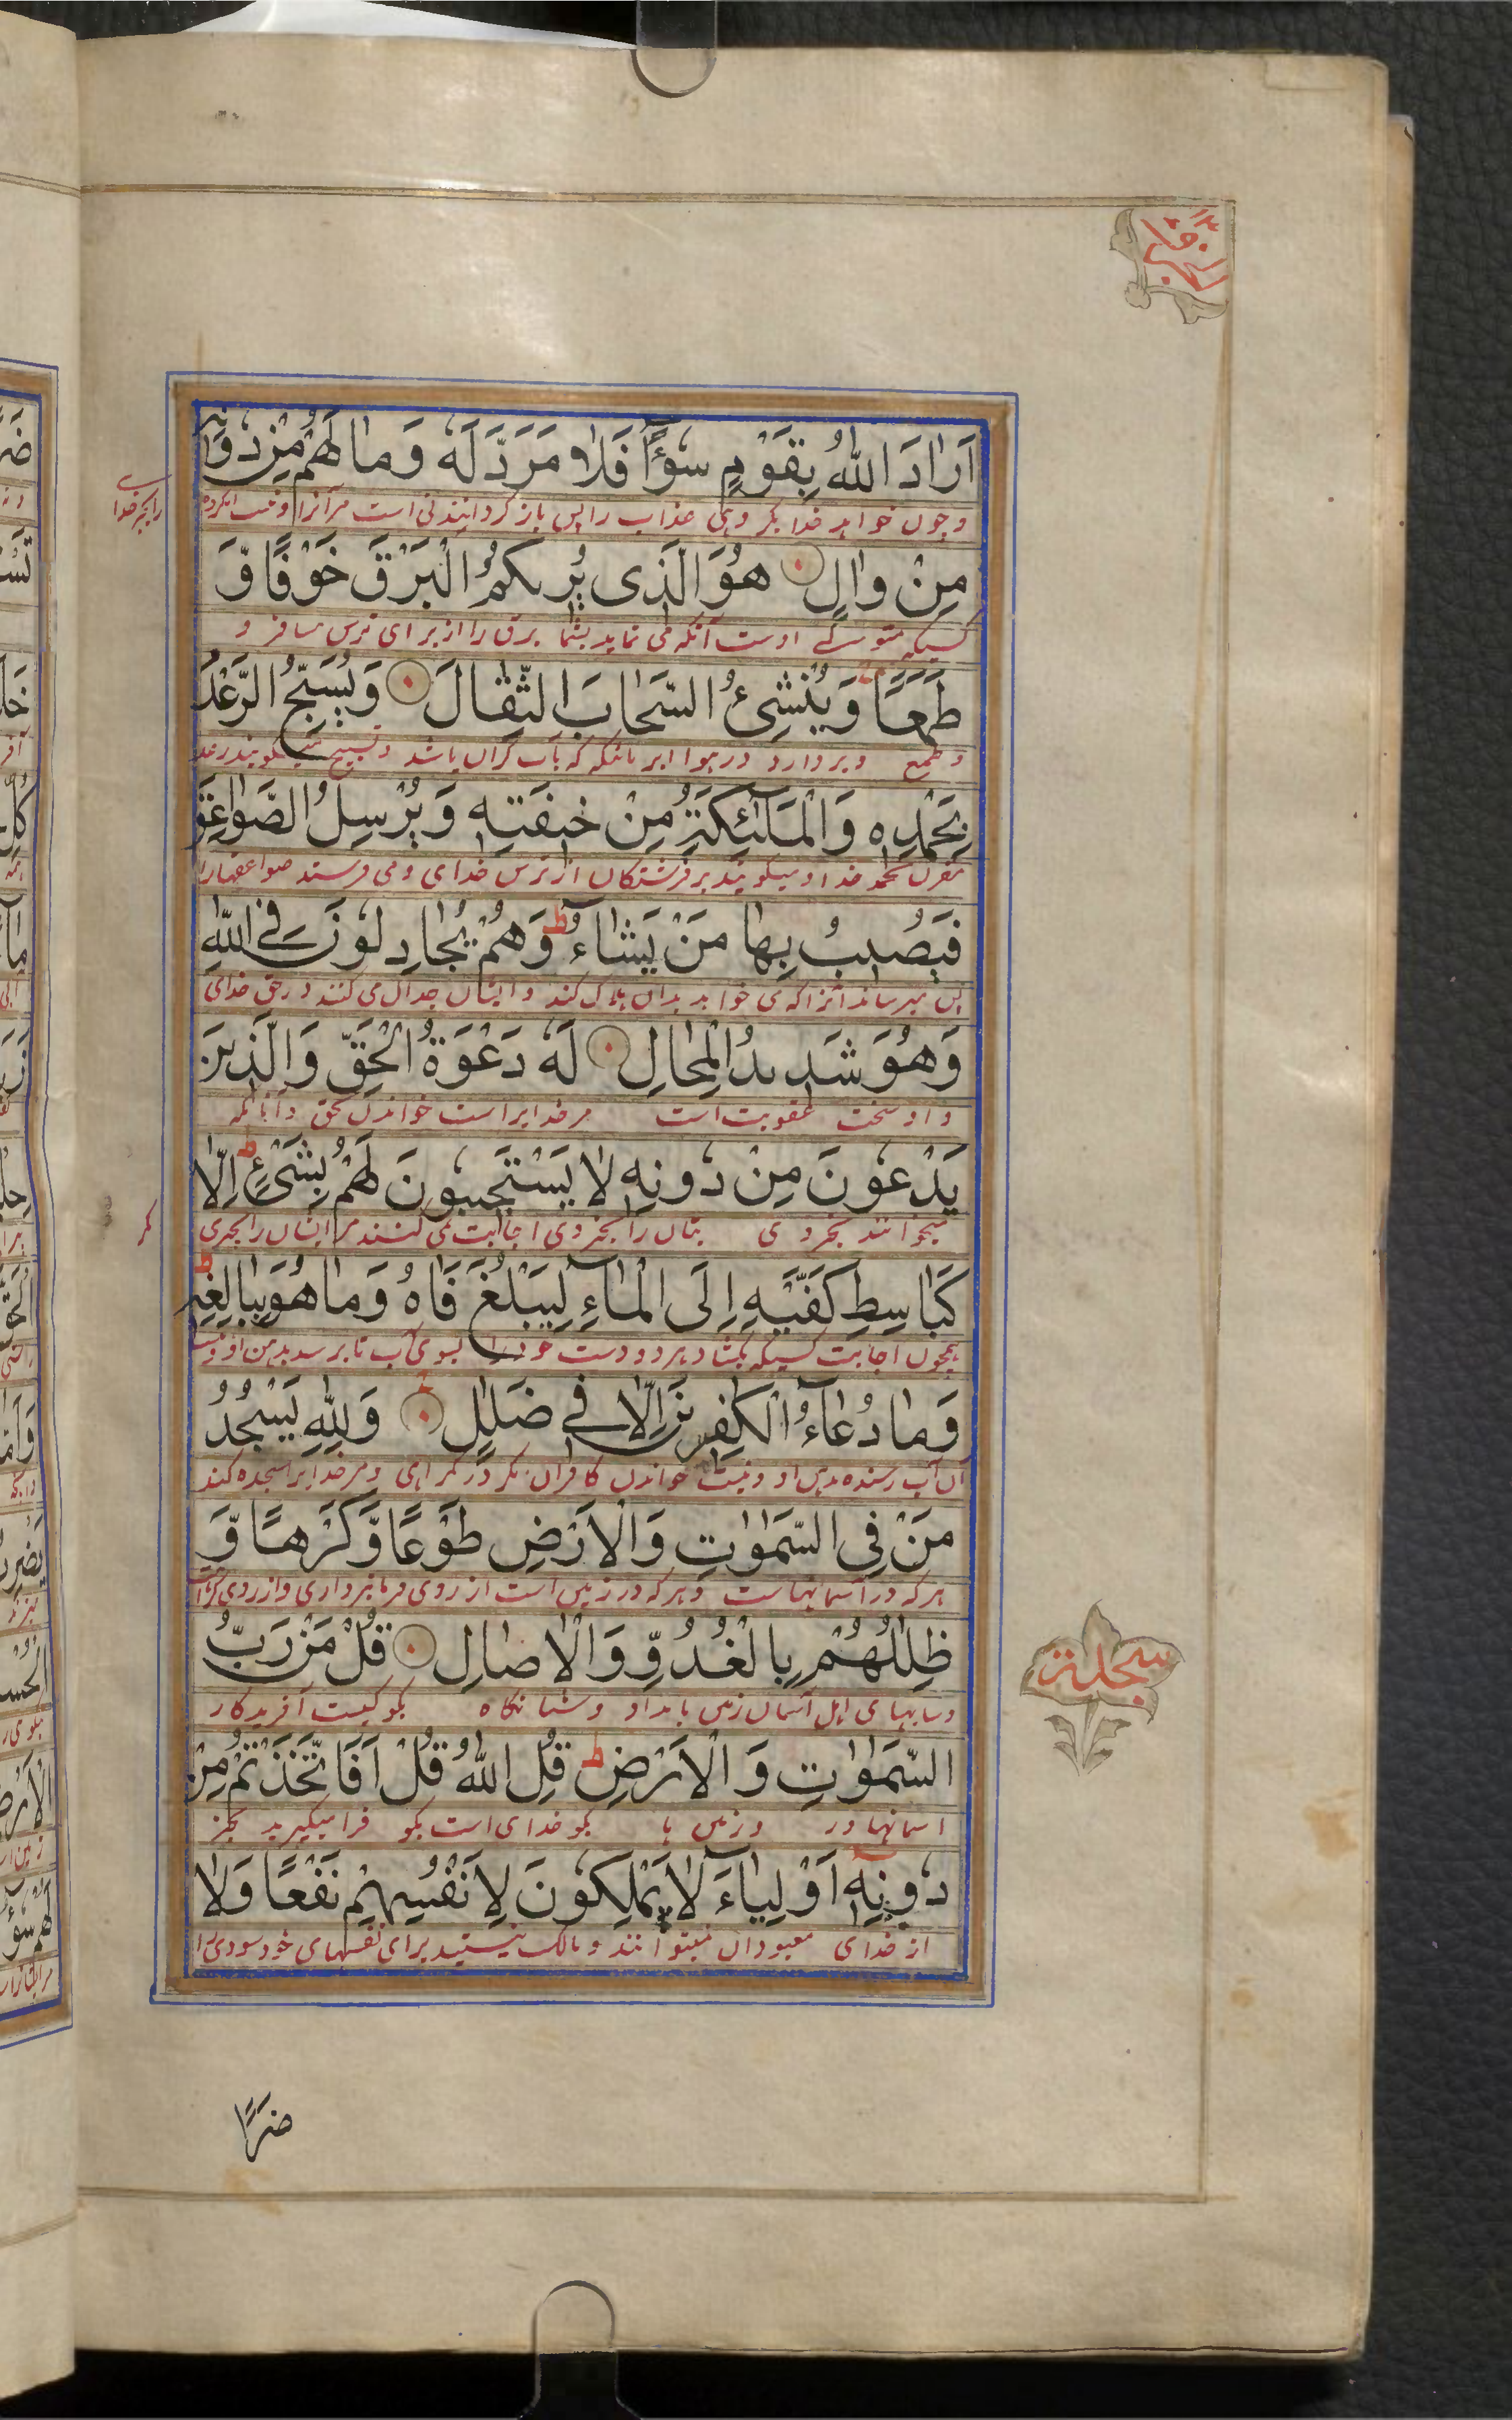 اَرَادَ اللّٰهُ بِقَوْمٍ سُوْٓءًا فَلَا مَرَدَّ لَهٗ وَمَا لَهُمْ مِنْ دُوْنِهٖ
و چون خواهد خدا بگروهی عذاب را پس باز گردانیدنی است مر آنرا و نیست
مِنْ وَّالٍ هُوَ الَّذِى يُرِيكُمُ الْبَرْقَ خَوْفًا وَّ
کسیکه متولی اوست آنکه می نماید بشما برق را از برای ترس مسافر و
طَمَعًا وَّيُنْشِئُ السَّحَابَ الثِّقَالَ وَيُسَبِّحُ الرَّعْدُ
و طمع و بردارد در هوا ابر بانکه که بآب گران باشد و تسبیح میگویند رعد
بِحَمْدِهٖ وَالْمَلٰٓئِكَةُ مِنْ خِيفَتِهٖ وَيُرْسِلُ الصَّوَاعِقَ
بحمد خدا و میگویند فرشتکان از ترس خدای و می فرستد صواعقها را
فَيُصِيبُ بِهَا مَنْ يَشَاءُ ط وَهُمْ يُجَادِلُونَ فِى اللّٰهِ
پس میرساند آنرا که می خواهد بدان هلاک کند و ایشان جدال می کنند در حق خدای
وَهُوَ شَدِيدُ الْمِحَالِ لَهٗ دَعْوَةُ الْحَقِّ وَالَّذِينَ
و او سخت عقوبت است مر خدایراست خواندن بحق و آنانکه
يَدْعُونَ مِنْ دُونِهٖ لَا يَسْتَجِيبُونَ لَهُمْ بِشَىْءٍ ط اِلَّا
میخوانند بجز وی بتان را بجز وی اجابت می کنند مر ایشان را بچیزی
كَبَاسِطِ كَفَّيْهِ اِلَى الْمَاءِ لِيَبْلُغَ فَاهُ وَمَا هُوَ بِبَالِغِهٖ ط
همچون اجابت کسیکه بکشاد هر دو دست خود را بسوی آب تا برسد بدهن او و نیست
وَمَا دُعَاءُ الْكٰفِرِينَ اِلَّا فِى ضَلٰلٍ وَلِلّٰهِ يَسْجُدُ
آن آب رسنده بدهن او و نیست خواندن کافران مگر در گمراهی و مر خدایرا سجده کند
مَنْ فِى السَّمٰوٰتِ وَالْاَرْضِ طَوْعًا وَّكَرْهًا وَّ
هر که در آسمانهاست و هر که در زمین است از روی فرمانبرداری و از روی کراهت
ظِلٰلُهُمْ بِالْغُدُوِّ وَالْاٰصَالِ قُلْ مَنْ رَبُّ
و سایهای اهل آسمان زمین بامداد و شبانگاه بگو کیست آفریدگار
السَّمٰوٰتِ وَالْاَرْضِ ط قُلِ اللّٰهُ قُلْ اَفَاتَّخَذْتُمْ مِنْ
اسمانها و زمین بگو خدای است بگو فرا میگیرید بجز
دُونِهٖ اَوْلِيَاءَ لَا يَمْلِكُونَ لِاَنْفُسِهِمْ نَفْعًا وَّلَا
از خدای معبودان نمیتوانند و مالک نیستید برای نفسهای خود سودی را
سجدة
ضَرًّا